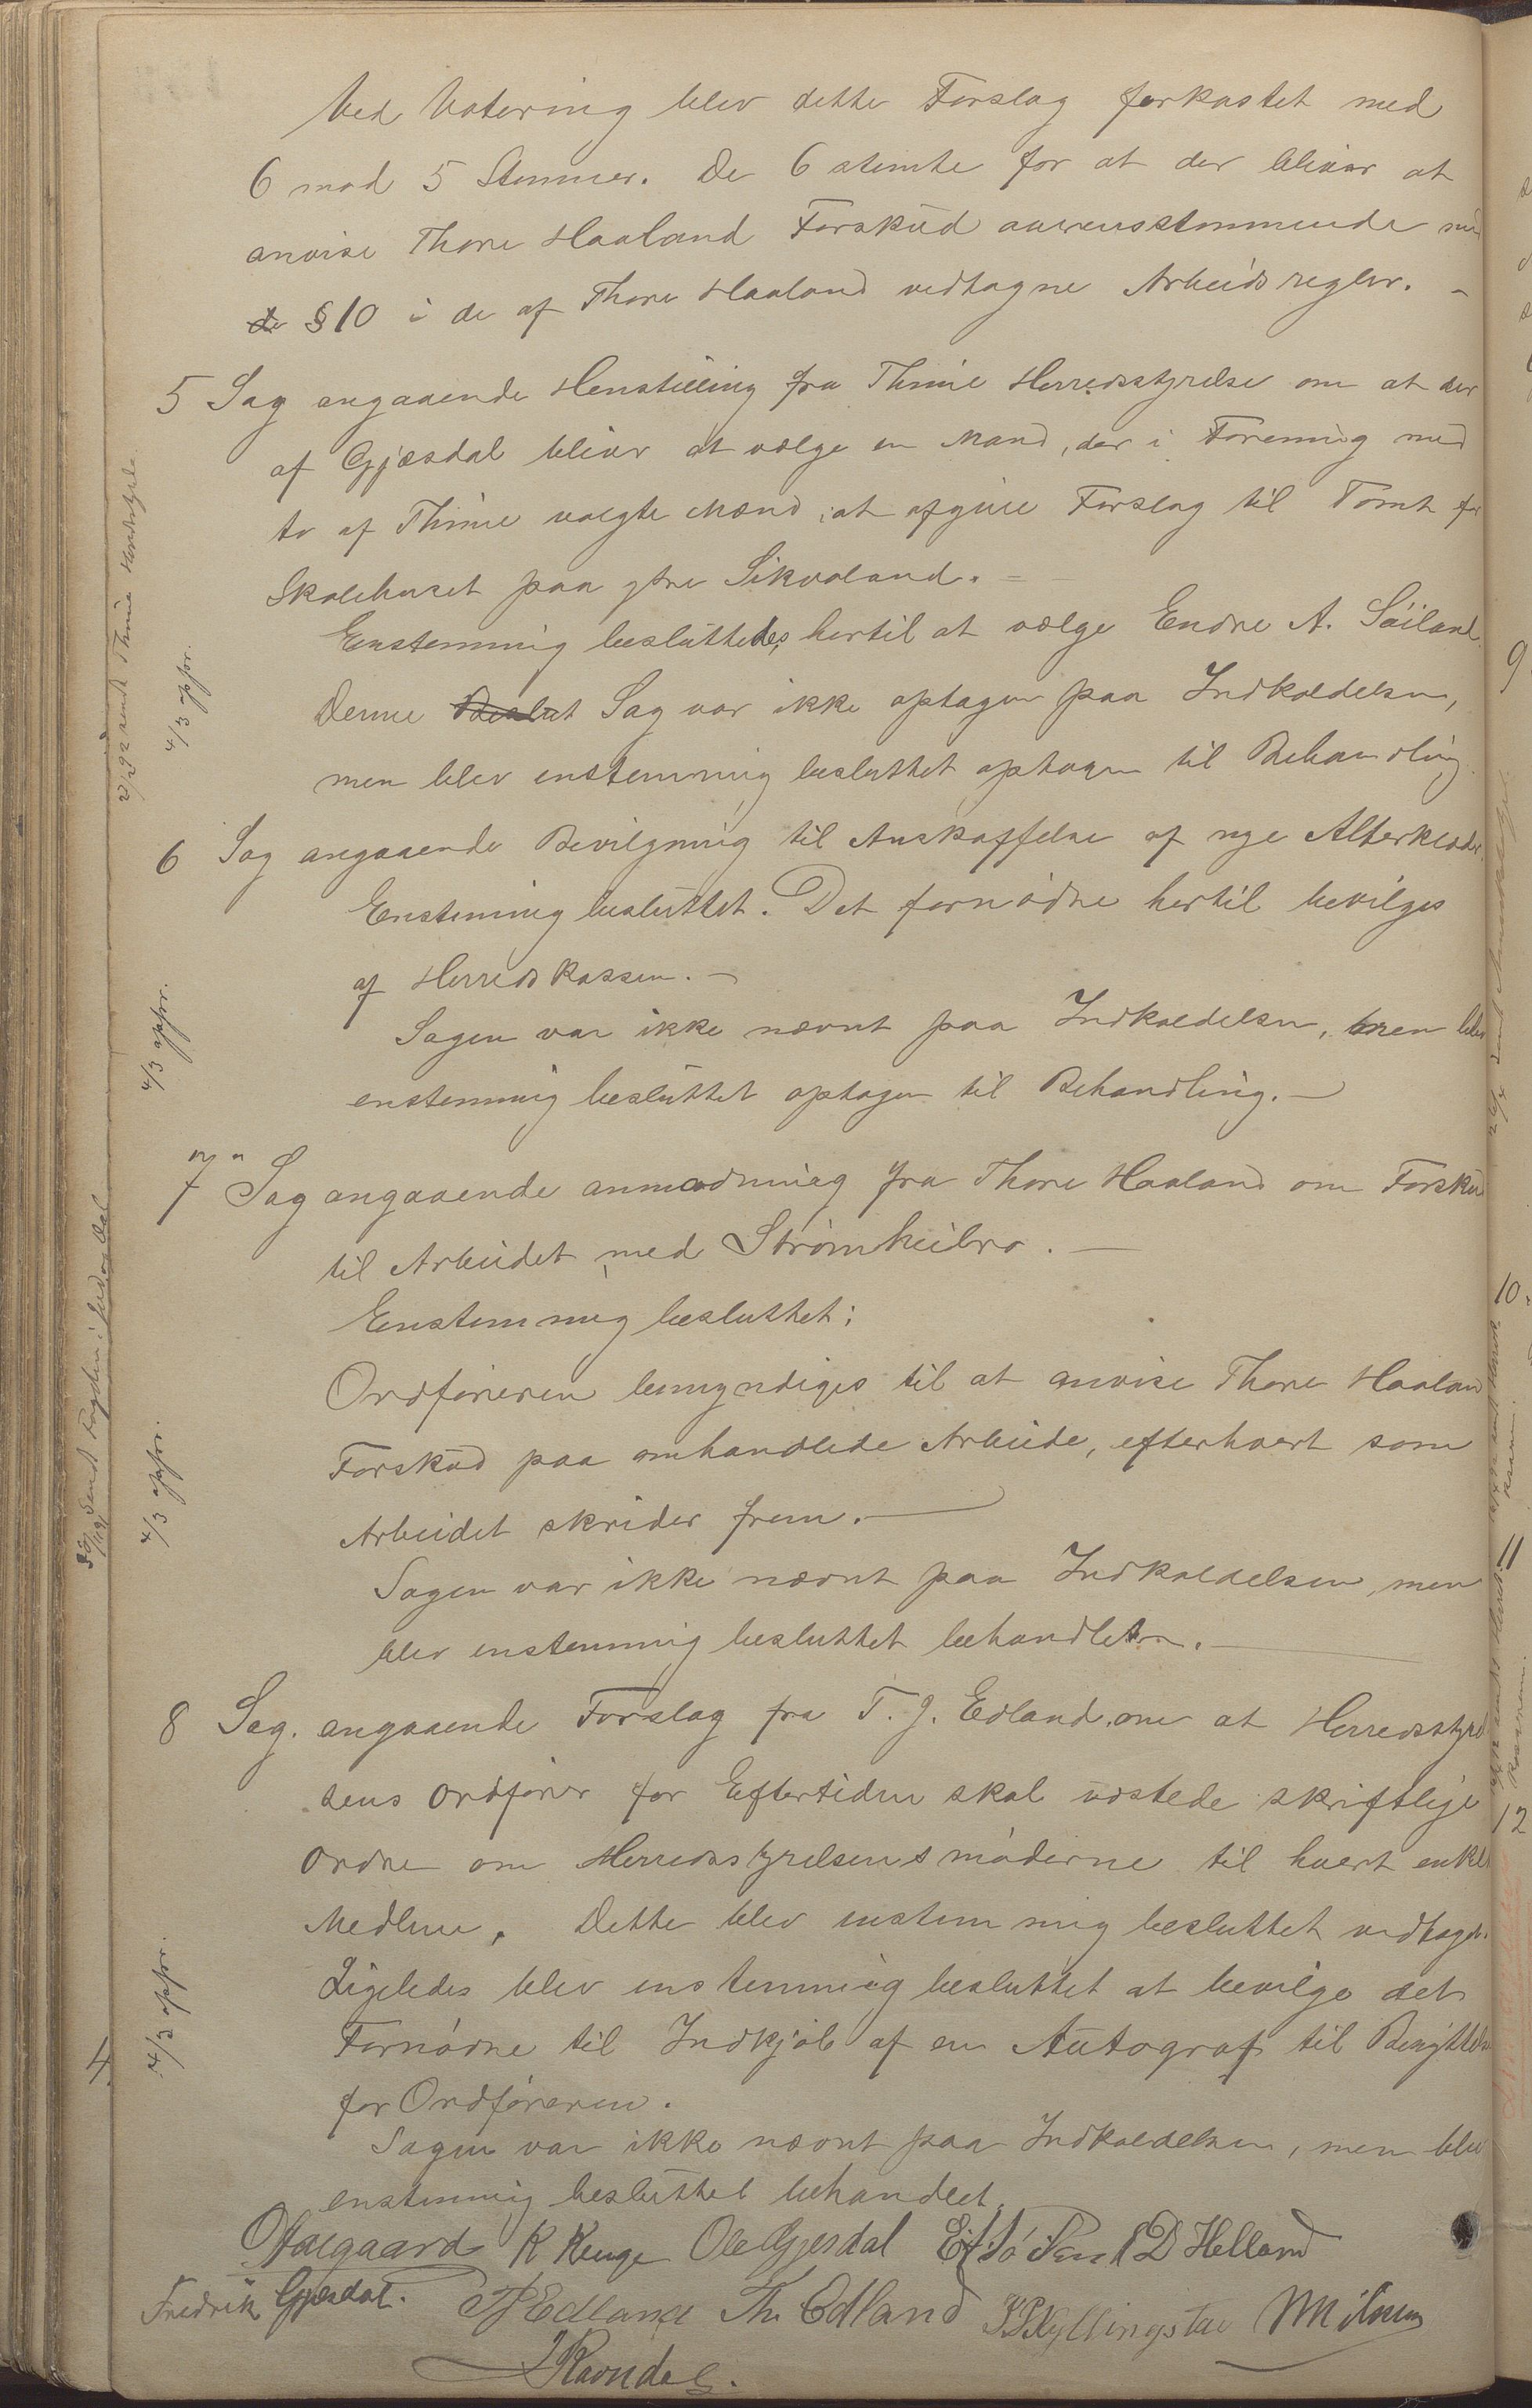 Ved Votering blev dette Forslag forkastet med
6 mod 5 Stemmer. De 6 stemte for at der bliver at
anvise Thore Haaland Forskud overensstemmende med
de §10 i de af Thore Haaland vedtagne Arbeidsregler. -
5 Sag angaaende Henstilling fra Thime Herredsstyrelse om at der
af Gjæsdal bliver at vælge en Mand, der i Forening med
to af Thime valgte Mænd, at afgive Forslag til Tomt for
Skolehuset paa ytre Sikvaland. -
Enstemmig besluttedes hertil at vælge Endre A. Söiland.
Denne Beslut Sag var ikke optagen paa Indkaldelsen,
men blev enstemmig besluttet optagen til Behandling.
6 Sag angaaende Bevilgning til Anskaffelse af nye Alterklæde.
Enstemmig besluttet. Det fornödne hertil bevilges
af Herredskassen. -
Sagen var ikke nævnt paa Indkaldelsen, men blev
enstemmig besluttet optagen til Behandling. -
7 Sag angaaende anmodning fra Thore Haaland om Forskud
til Arbeidet med Strömheibro. -
Enstemmig besluttet:
Ordföreren bemyndiges til at anvise Thore Haaland
Forskud paa omhandlede Arbeide, efterhvert som
Arbeidet skrider frem. -
Sagen var ikke nævnt paa Indkaldelsen, men
blev enstemmig besluttet behandlet.
8 Sag. angaaende Forslag fra T. J. Edland om at Herredsstyrel
sens Ordförer for Eftertiden skal udstede skriftlige
Ordre om Herredsstyrelsens möderne til hvert enkelt
Medlem. Dette blev enstemmig besluttet vedtaget.
Ligeledes blev enstemmig besluttet at bevilge det
Fornödne til Indkjöb af en Autograf til Benyttelse
for Ordföreren.
Sagen var ikke nævnt paa Indkaldelsen, men blev
enstemmig besluttet behandlet.
O Aalgaard K Kenge Ole Gjesdal D Helland
Fredrik Gjesdal. TJ Edland Th. Edland Kyllingstad
J Ravndal.
4/3 appr.
4/3 appr.
4/3 appr.
4/3 appr.
4
9
10
11
12